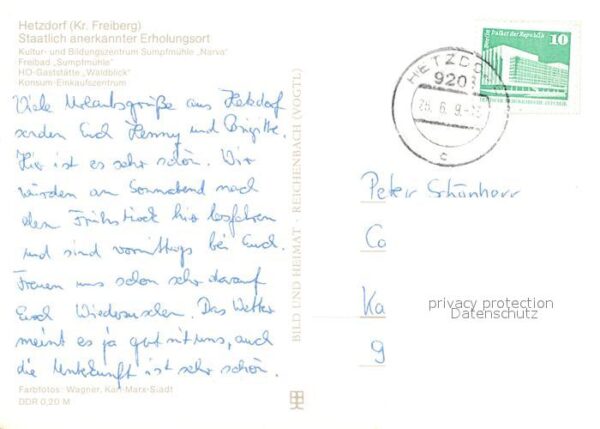 Hetzdorf (Kr. Freiberg)
Staatlich anerkannter Erholungsort
Kultur- und Bildungszentrum Sumpfmühle „Narva"
Freibad „Sumpfmühle"
HO-Gaststätte „Waldblick"
Konsum-Einkaufszentrum
Viele Urlaubsgrüße aus Hetzdorf
senden Euch Henny und Brigitte.
Hier ist es sehr schön. Wir
würden am Sonnabend nach
dem Frühstück hier losfahren
und sind vormittags bei Euch.
Freuen uns schon sehr darauf
Euch Wiederzusehen. Das Wetter
meint es ja gut mit uns, auch
die Unterkunft ist sehr schön.
Farbfotos: Wagner, Karl-Marx-Stadt
DDR 0,20 M
BILD UND HEIMAT · REICHENBACH (VOGTL)
Berlin Palast der Republik
10
HETZDO
920
c
Peter Schönherr
Co
Ka
9
privacy protection
Datenschutz